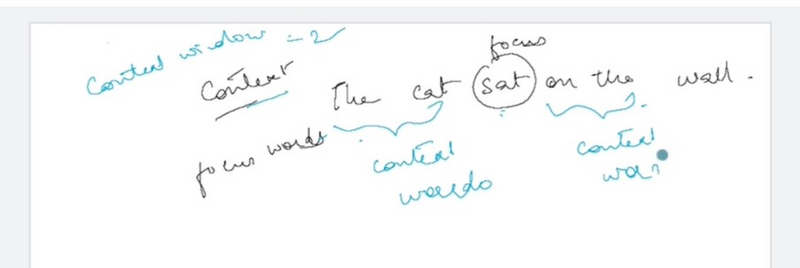 Context window = 2
focus
Context
The cat sat on the wall.
focus words
context context
words wor